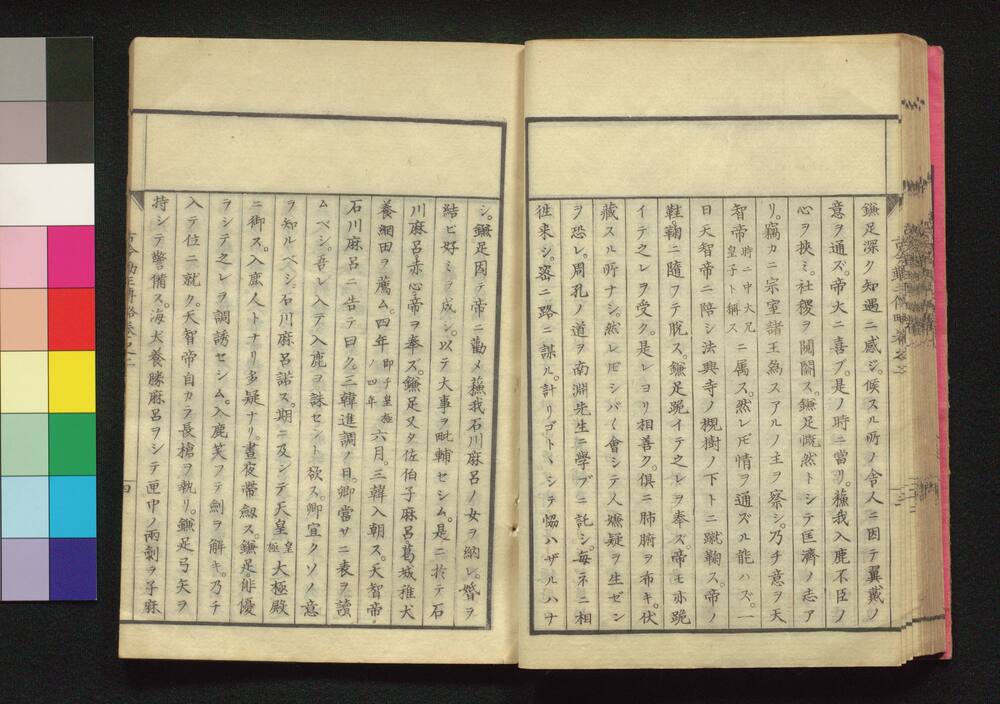 鎌足深ク知遇ニ感ジ。候スル所ノ舎人ニ因テ翼戴ノ
意ヲ通ズ。帝大ニ喜ブ。是ノ時ニ當リ。蘓我入鹿不臣ノ
心ヲ挾ミ。社稷ヲ闚𨵦ス。鎌足慨然トシテ匡濟ノ志ア
リ。竊カニ宗室諸王為スアルノ主ヲ察シ。乃チ意ヲ天
智帝時ニ中大兄皇子ト稱スニ属ス。然レ𪜈情ヲ通ズル能ハズ。一
日天智帝ニ陪シ法興寺ノ槻樹ノ下トニ蹴鞠ス。帝ノ
鞋。鞠ニ隨フテ脱ス。鎌足跪イテ之レヲ奉ズ。帝モ亦跪
イテ之レヲ受ク。是レヨリ相善ク。倶ニ肺腑ヲ布キ。伏
藏スル所ナシ。然レ𪜈シバ〱會シテ人ノ嫌疑ヲ生ゼン
ヲ恐レ。周孔ノ道ヲ南淵先生ニ學ブニ託シ。毎ネニ相
徃来シ。密ニ路ニ謀ル。計リゴトヽシテ恊ハザルハナ
シ。鎌足因テ帝ニ勸メ蘓我石川麻呂ノ女ヲ納レ。婚ヲ
結ビ好ミヲ成シ。以テ大事ヲ毗輔セシム。是ニ於テ石
川麻呂。赤心帝ヲ奉ズ。鎌足又タ佐伯子麻呂。葛城稚犬
養網田ヲ薦ム。四年即チ皇極ノ四年六月。三韓入朝ス。天智帝。
石川麻呂ニ告テ曰ク。三韓進調ノ日。卿當サニ表ヲ讀
ムベシ。吾レ入テ入鹿ヲ誅セント欲ス。卿宜クソノ意
ヲ知ルベシ。石川麻呂諾ス。期ニ及ンデ天皇皇極大極殿
ニ御ス。入鹿人トナリ多疑ナリ。晝夜帶劔ス。鎌足。俳優
ヲシテ之レヲ調誘セシム。入鹿笑フテ劍ヲ解キ。乃チ
入テ位ニ就ク。天智帝自カラ長槍ヲ執リ。鎌足弓矢ヲ
持シテ警備ス。海犬養勝麻呂ヲシテ匣中ノ兩劍ヲ子麻
四